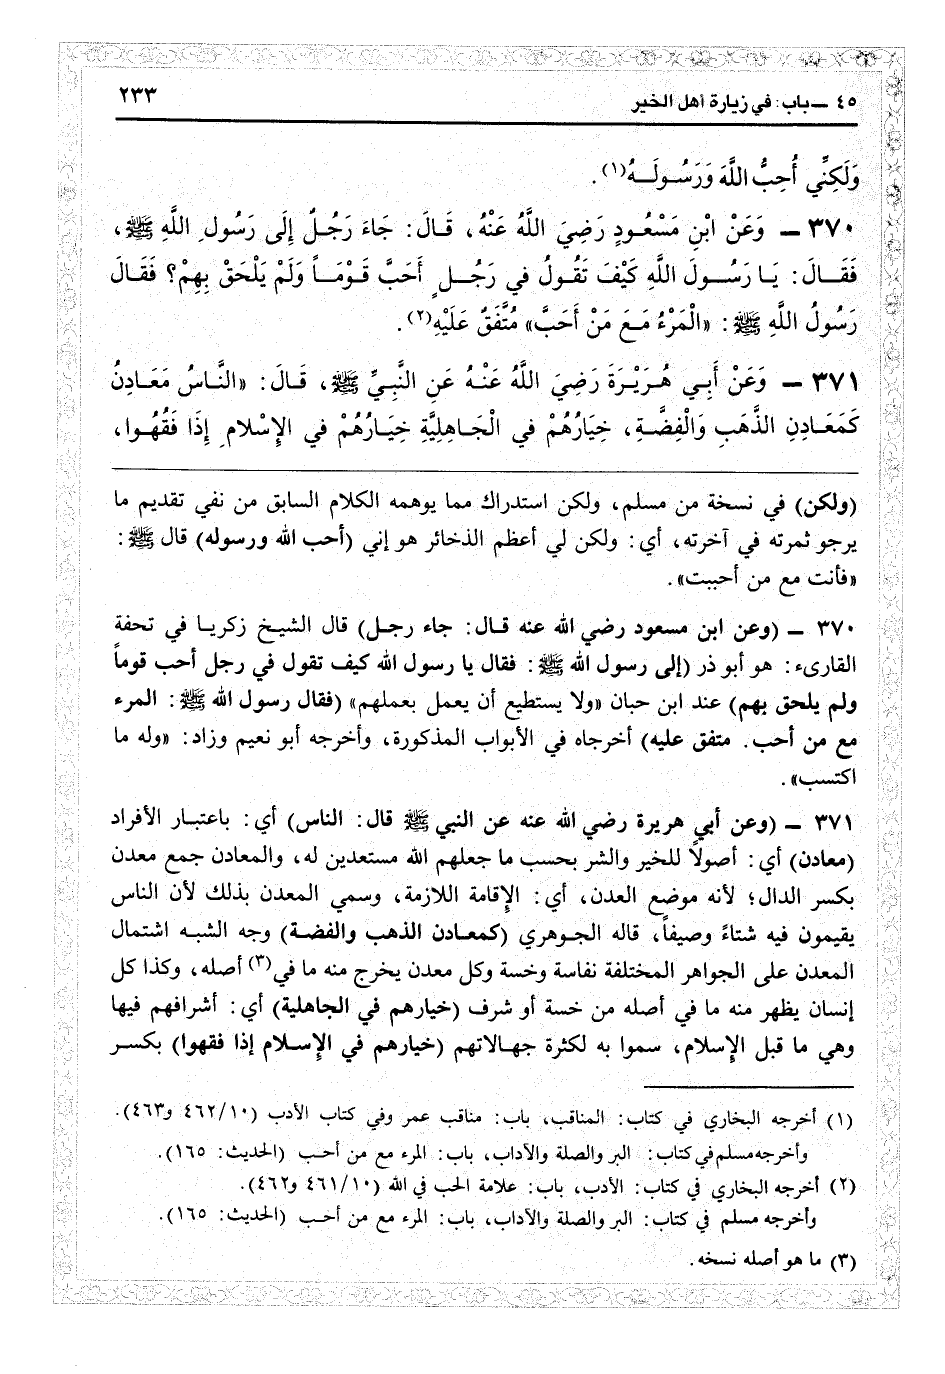 ٤٥ ــ باب: في زيارة أهل الخير
٢٣٣
وَلَكِنِّي أُحِبُّ اللَّهَ وَرَسُولَهُ(١).
٣٧٠ ــ وَعَنْ ابْنِ مَسْعُودٍ رَضِيَ اللَّهُ عَنْهُ، قَالَ: جَاءَ رَجُلٌ إِلَى رَسُولِ اللَّهِ ﷺ،
فَقَالَ: يَا رَسُولَ اللَّهِ كَيْفَ تَقُولُ في رَجُلٍ أَحَبَّ قَوْمَاً وَلَمْ يَلْحَقْ بِهِمْ؟ فَقَالَ
رَسُولُ اللَّهِ ﷺ: «الْمَرْءُ مَعَ مَنْ أَحَبَّ» مُتَّفَقٌ عَلَيْهِ(٢).
٣٧١ ــ وَعَنْ أَبِي هُرَيْرَةَ رَضِيَ اللَّهُ عَنْهُ عَنِ النَّبِيِّ ﷺ، قَالَ: «النَّاسُ مَعَادِنُ
كَمَعَادِنِ الذَّهَبِ وَالْفِضَّةِ، خِيَارُهُمْ في الْجَاهِلِيَّةِ خِيَارُهُمْ في الإِسْلامِ إِذَا فَقُهُوا،
(ولكن) في نسخة من مسلم، ولكن استدراك مما يوهمه الكلام السابق من نفي تقديم ما
يرجو ثمرته في آخرته، أي: ولكن لي أعظم الذخائر هو إني (أحب الله ورسوله) قال ﷺ:
«فأنت مع من أحببت».
٣٧٠ ــ (وعن ابن مسعود رضي الله عنه قال: جاء رجل) قال الشيخ زكريا في تحفة
القارىء: هو أبو ذر (إلى رسول الله ﷺ: فقال يا رسول الله كيف تقول في رجل أحب قوماً
ولم يلحق بهم) عند ابن حبان «ولا يستطيع أن يعمل بعملهم» (فقال رسول الله ﷺ: المرء
مع من أحب. متفق عليه) أخرجاه في الأبواب المذكورة، وأخرجه أبو نعيم وزاد: «وله ما
اكتسب».
٣٧١ ــ (وعن أبي هريرة رضي الله عنه عن النبي ﷺ قال: الناس) أي: باعتبار الأفراد
(معادن) أي: أصولاً للخير والشر بحسب ما جعلهم الله مستعدين له، والمعادن جمع معدن
بكسر الدال؛ لأنه موضع العدن، أي: الإقامة اللازمة، وسمي المعدن بذلك لأن الناس
يقيمون فيه شتاءً وصيفاً، قاله الجوهري (كمعادن الذهب والفضة) وجه الشبه اشتمال
المعدن على الجواهر المختلفة نفاسة وخسة وكل معدن يخرج منه ما في(٣) أصله، وكذا كل
إنسان يظهر منه ما في أصله من خسة أو شرف (خيارهم في الجاهلية) أي: أشرافهم فيها
وهي ما قبل الإسلام، سموا به لكثرة جهالاتهم (خيارهم في الإسلام إذا فقهوا) بكسر
(١) أخرجه البخاري في كتاب: المناقب، باب: مناقب عمر وفي كتاب الأدب (٤٦٢/١٠ و٤٦٣).
وأخرجه مسلم في كتاب: البر والصلة والآداب، باب: المرء مع من أحب (الحديث: ١٦٥).
(٢) أخرجه البخاري في كتاب: الأدب، باب: علامة الحب في الله (٤٦١/١٠ و٤٦٢).
وأخرجه مسلم في كتاب: البر والصلة والآداب، باب: المرء مع من أحب (الحديث: ١٦٥).
(٣) ما هو أصله نسخه.